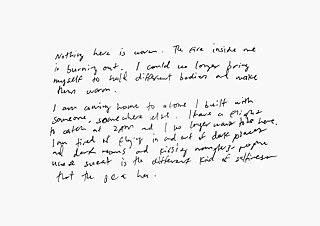 Nothing here is warm. The fire inside me
is burning out. I could no longer bring
myself to hold different bodies and make
them warm.
I am coming home to a love I built with
someone, somewhere else. I have a flight
to catch at 2pm and I no longer want to be here.
I am tired of flying in and out of dark places
and dark rooms and kissing nameless people
whose sweat is the different kind of saltiness
that the sea has.